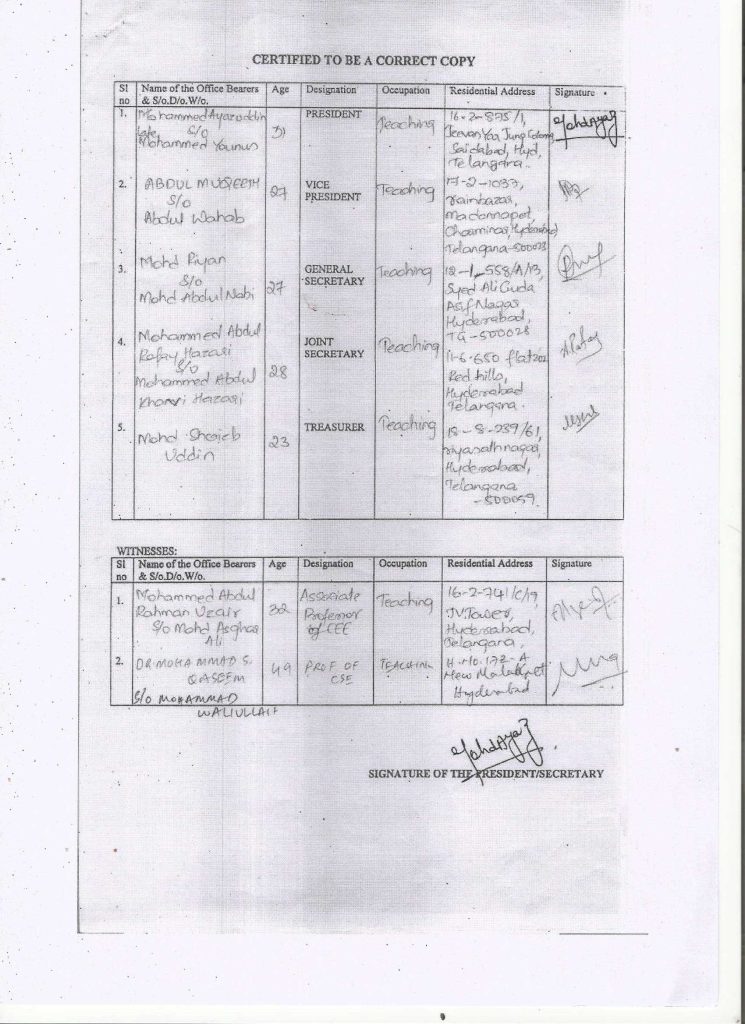 CERTIFIED TO BE A CORRECT COPY
Sl no Name of the Office Bearers & S/o.D/o.W/o. Age Designation Occupation Residential Address Signature
1. Mohammed Ayazuddin S/o late Mohammed Younus 31 PRESIDENT Teaching 16-2-875/1, Jeevan Yar Jung Colony Saidabad, Hyd, Telangana. Mohd Ayaz
2. ABDUL MUQEETH S/o Abdul Wahab 27 VICE PRESIDENT Teaching 17-2-1033, rainbazar, madannapet, Charminar, Hyderabad Telangana-500023
3. Mohd Riyan S/o Mohd Abdul Nabi 27 GENERAL SECRETARY Teaching 12-1-558/A/13, Syed Ali Guda Asif Nagar Hyderabad, TG-500028
4. Mohammed Abdul Rafay Hazari S/o Mohammed Abdul Hazari 28 JOINT SECRETARY Teaching 11-6-650 Red hills, Hyderabad Telangana.
5. Mohd Shoieb Uddin 23 TREASURER Teaching 18-8-239/61, riyasathnagar, Hyderabad, Telangana -500059.
WITNESSES:
Sl no Name of the Office Bearers & S/o.D/o.W/o. Age Designation Occupation Residential Address Signature
1. Mohammed Abdul Rahman Uzair S/o Mohd Asghar Ali 32 Associate Professor of EEE Teaching 16-2-741/C/9, TV Tower, Hyderabad, Telangana.
2. DR MOHAMMAD S. QASEEM S/o MOHAMMAD WALIULLAH 49 PROF OF CSE TEACHING H.NO.172-A New Malakpet Hyderabad
Mohd Ayaz
SIGNATURE OF THE PRESIDENT/SECRETARY